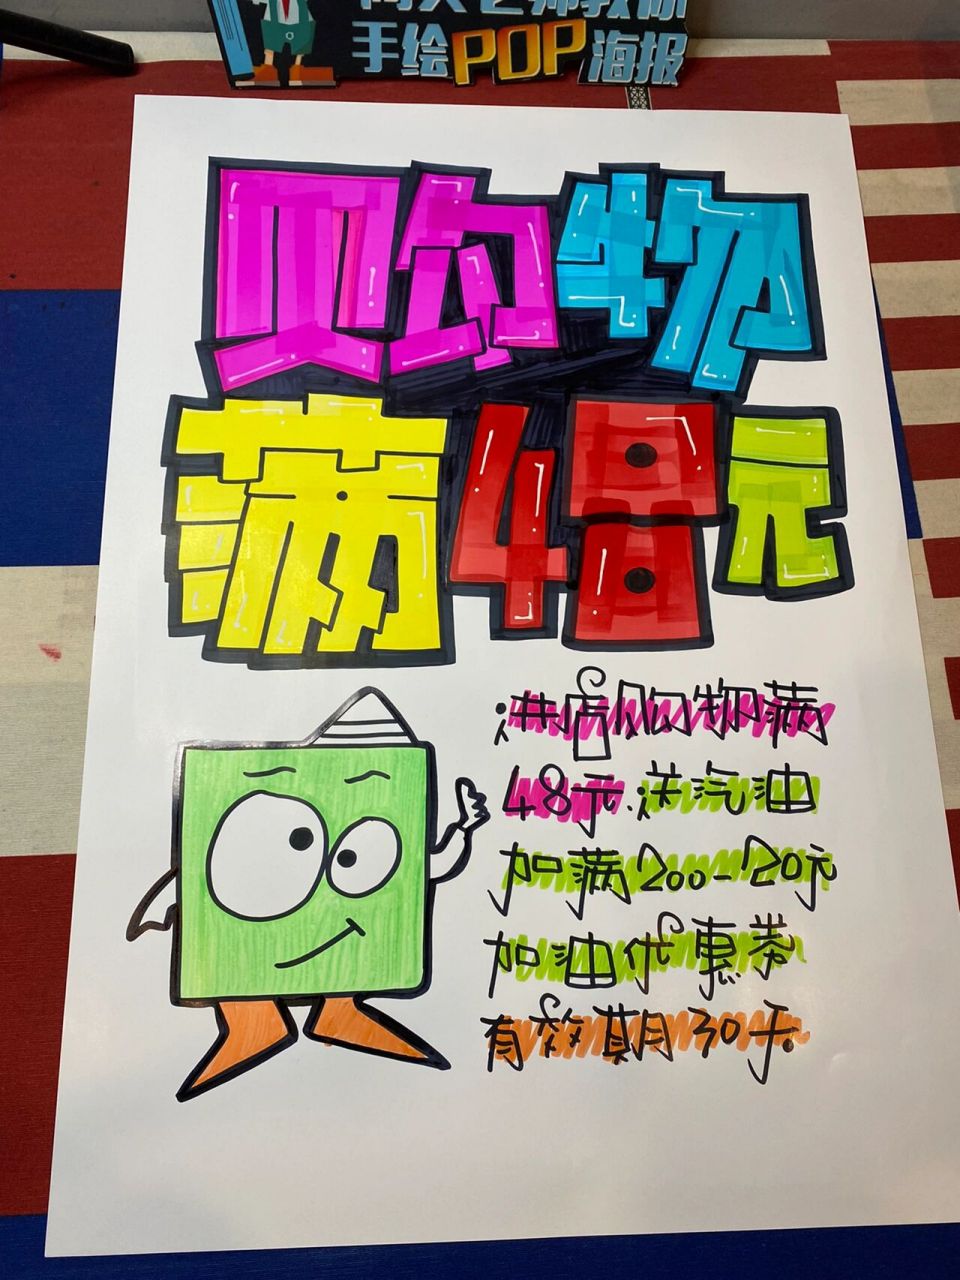 手绘POP海报
购物
满48元
进店购物满
48元.送汽油
加满200-20元
加油优惠券
有效期30天.